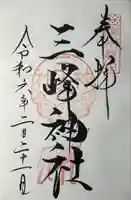 奉拝
三峰神社
令和六年二月二十一日